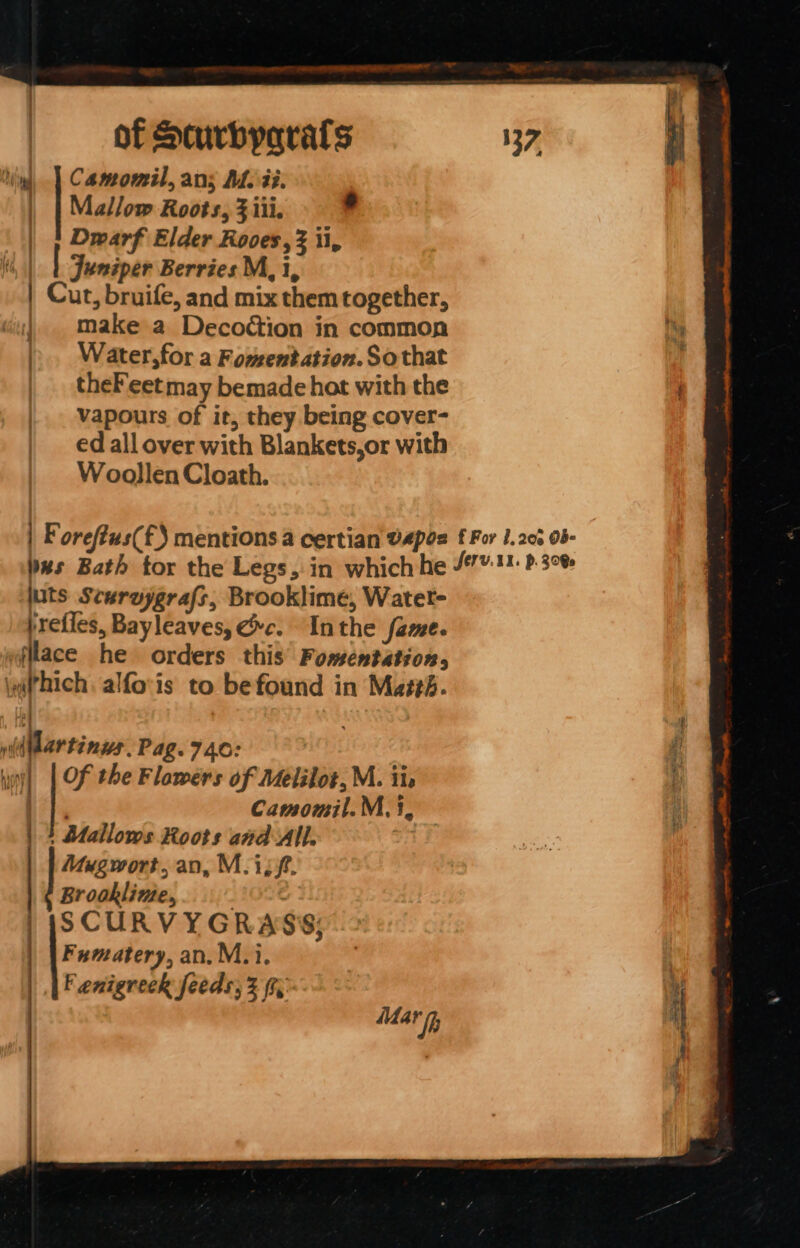 of Scurbygraſs 137,
Camomil, an; M. ii.
Mallow Roots, ℥ iii.
Dwarf Elder Rooes, ℥ ii,
Juniper Berries M, i,
Cut, bruiſe, and mix them together,
make a Decoction in common
Water, for a Fomentation. So that
the Feet may be made hot with the
vapours of it, they being cover-
ed all over with Blankets, or with
Woollen Cloath.
Foreſtus (f) mentions a certian vapos
f For l. 20; Ob-
pus Bath for the Legs, in which he
ſerv. 11. p. 308.
puts Scurvygraſs, Brooklime, Water-
creſſes, Bayleaves, &c. In the ſame.
place he orders this Fomentation,
which alſo is to be found in Matth.
Martinus. Pag. 740:
Of the Flowers of Melilot, M. ii,
Camomil. M. i,
Mallows Roots and All.
Mugwort, an, M. i; ſſ.
Brooklime,
SCURVYGRASS;
Fumatery, an. M. i.
Fænigreek ſeeds; ℥ ſſ,
Marſh